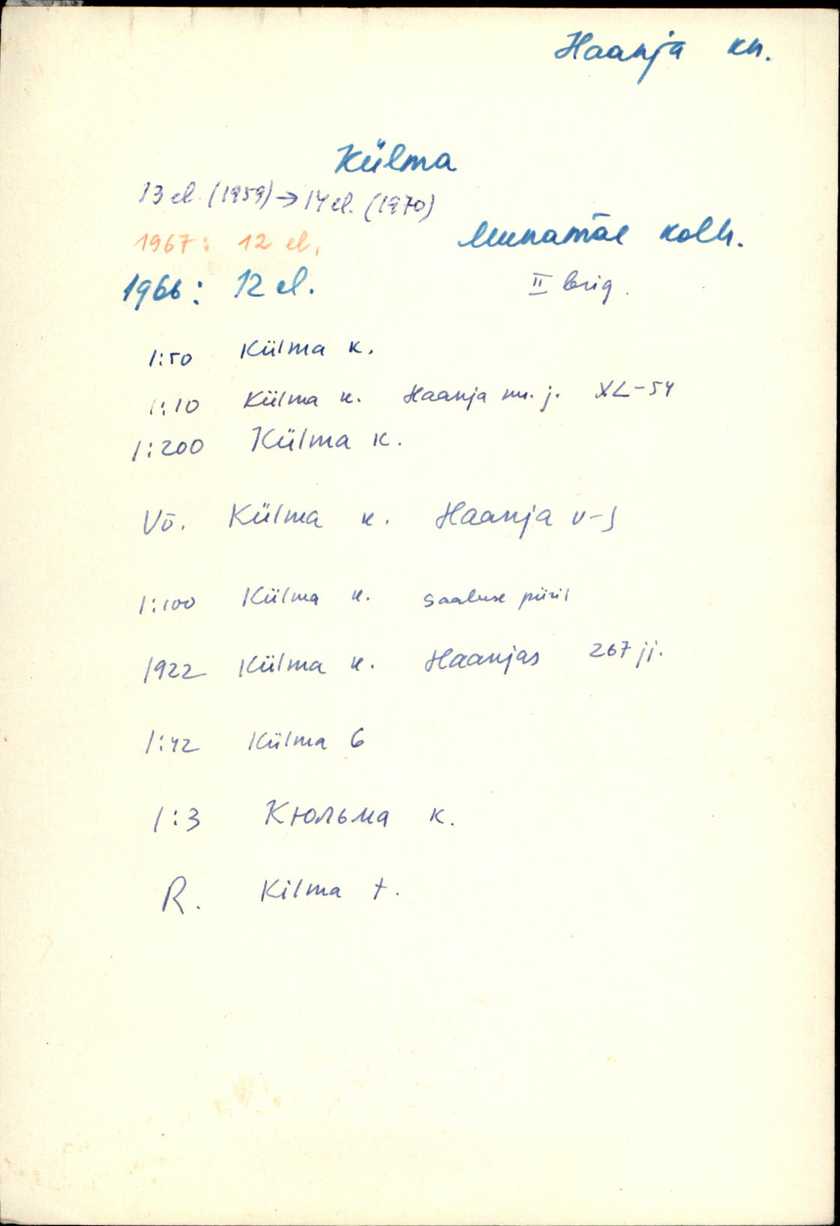 Haanja kn.
Külma
13 el. (1959) → 14 el. (1970)
1967: 12 el.
Munamäe kolh.
1966: 12 el.
II brig.
1:50 Külma k.
1:10 Külma k. Haanja m. j. XL-54
1:200 Külma k.
Võ. Külma k. Haanja v-s
1:100 Külma k. Saaluse piiril
1922 Külma k. Haanjas 267 jj.
1:42 Külma 6
1:3 Кюльма к.
R. Kilma t.